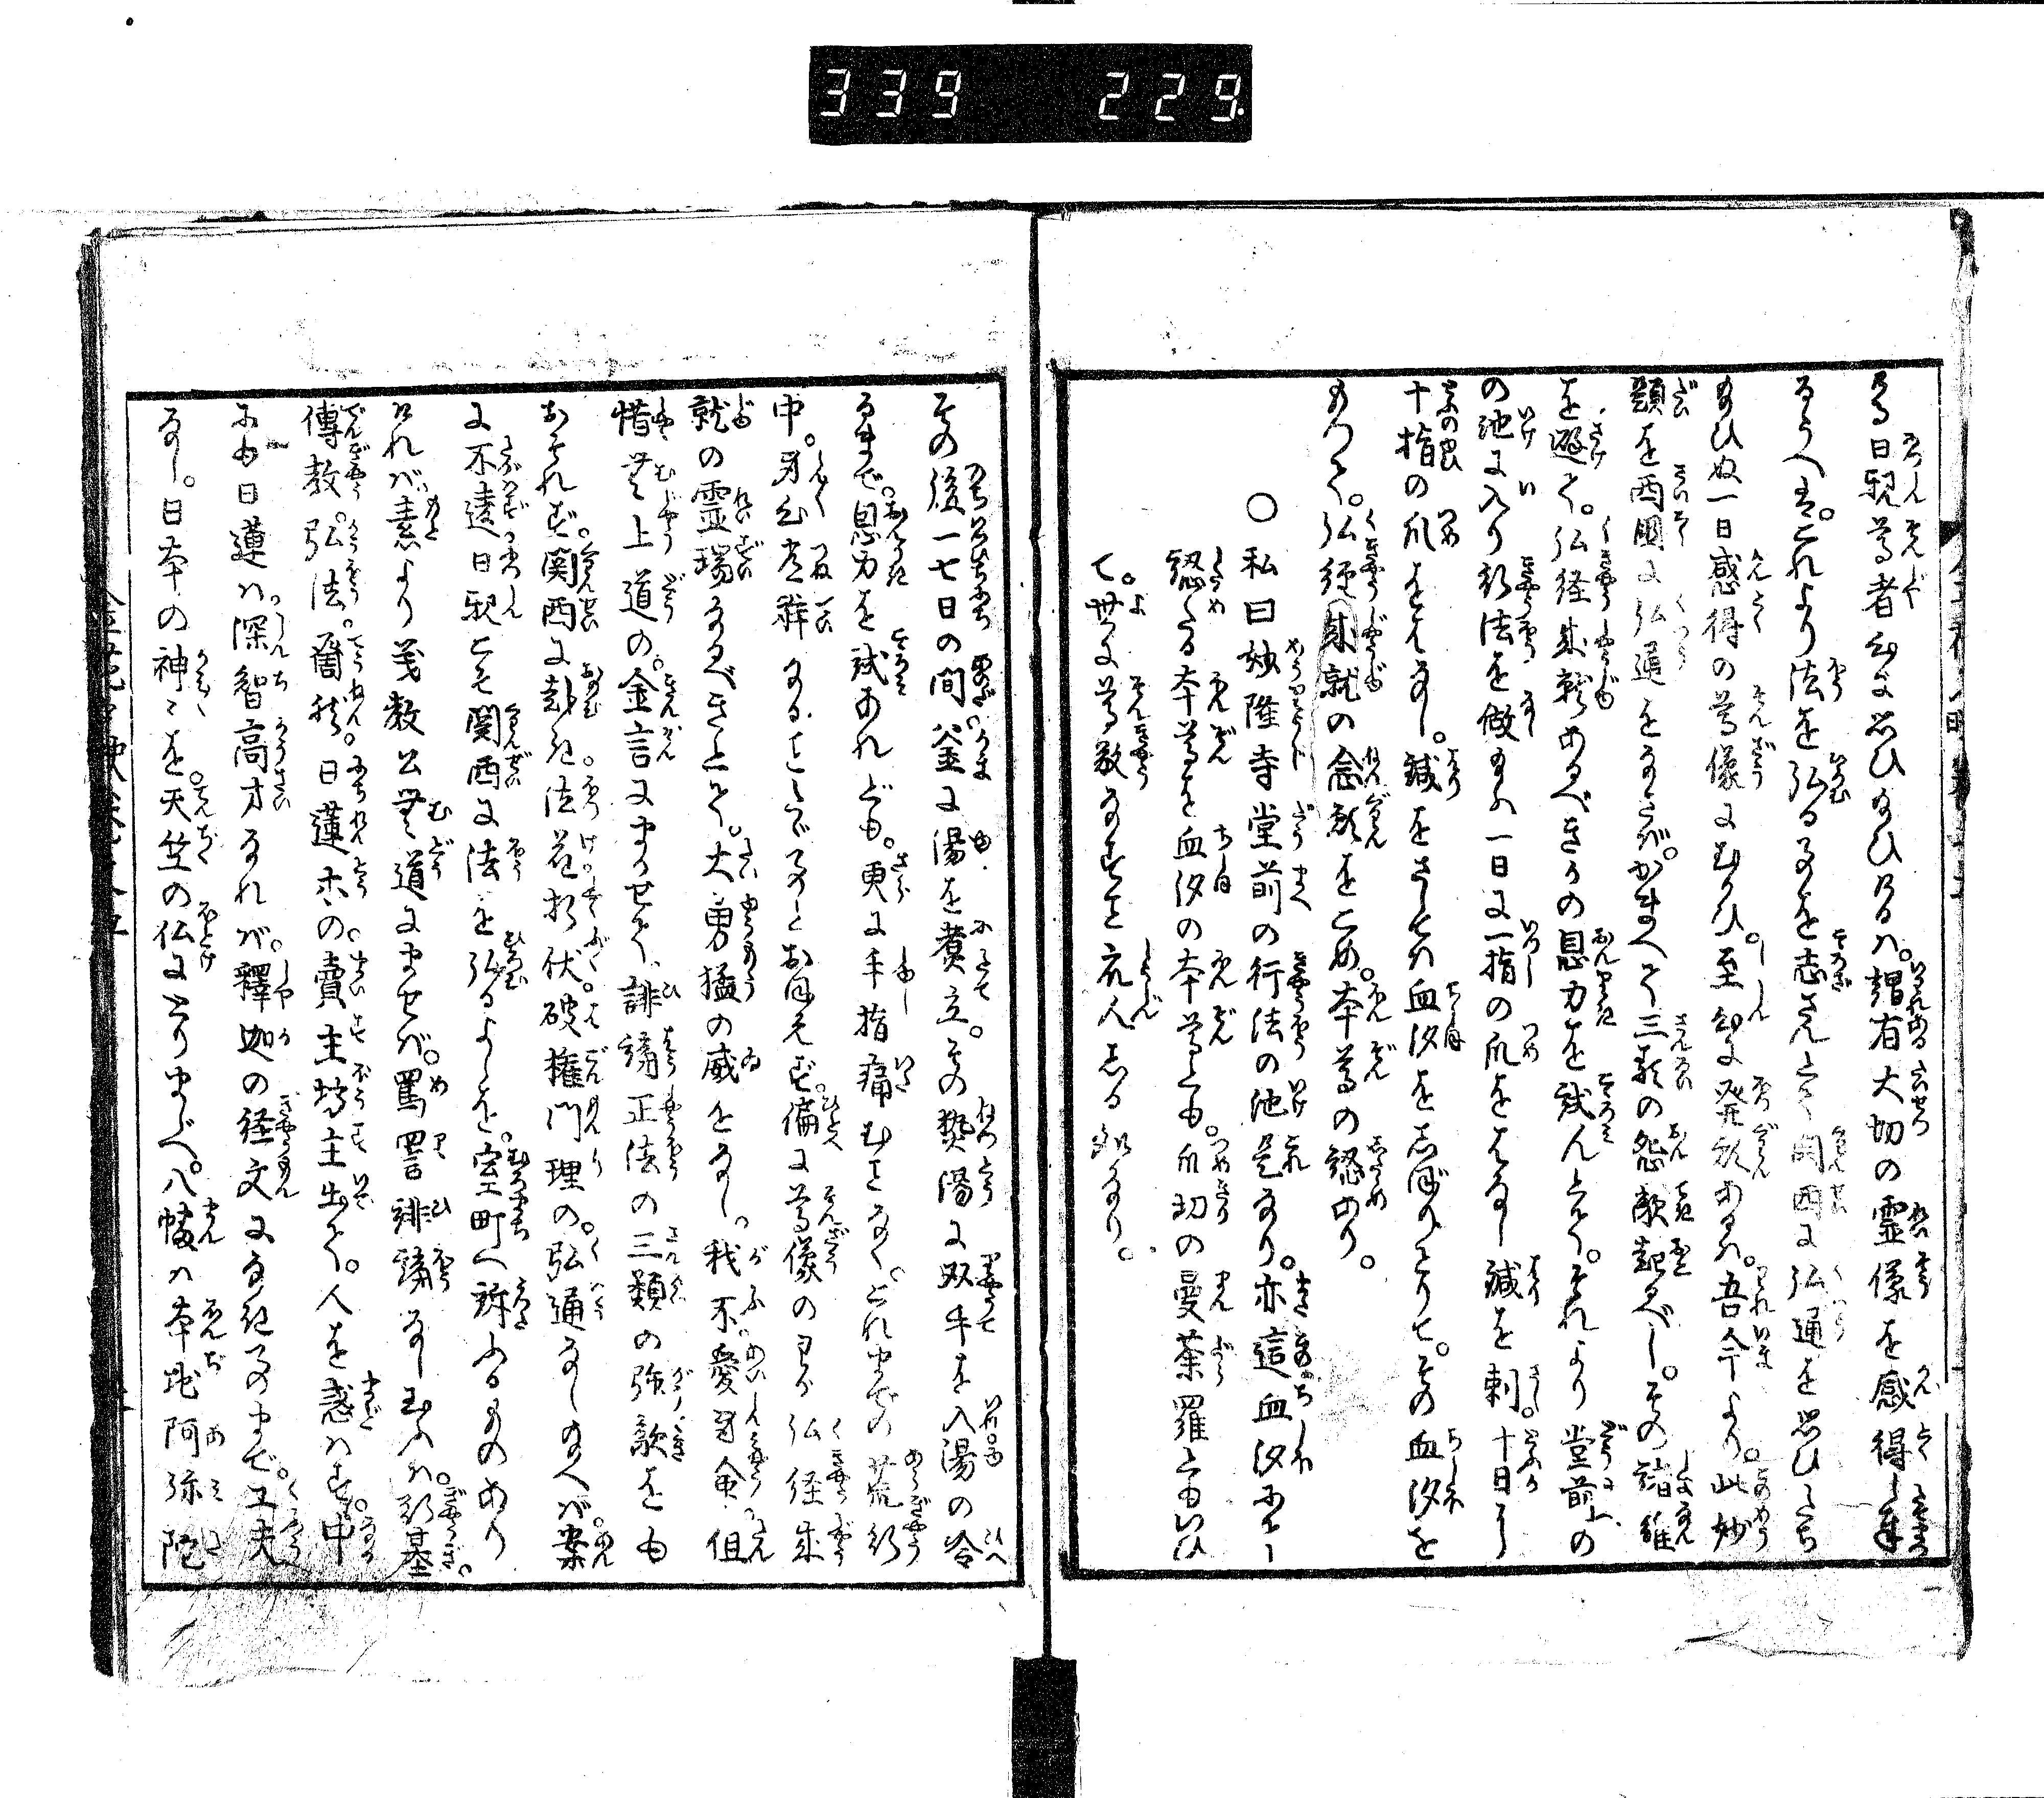 339 229
る日親尊者心に思ひ給ひけるハ。謂有大切の霊像を感得し奉
るうへハ。これより法を弘る事を志さんとて関西に弘通を思ひたち
給ひぬ一日感得の尊像にむかひ。至心に発願あるハ。吾今より。此妙
題を西国に弘通をなさバ。かまへて三類の怨敵起るべし。その諸難
を避て。弘経成就あるべきかの忍力を試んとて。それより堂前の
の池に入り行法を做給ふ一日に一指の爪をはなし鍼を刺。十日に
十指の爪をはなし。鍼をさしてハ血汐をしぼりとりて。その血汐を
もつて。弘経成就の念願をこめ。本尊の認あり。
○私曰妙隆寺堂前の行法の池是なり。亦這血汐にて
認たる本尊を血汐の本尊とも。爪切の曼荼羅ともいひ
て。世に尊敬なすこと衆人しる所なり。
その後一七日の間釜に湯を煮立。その熱湯に双手を入湯の冷
るまで。忍力を試あれども。更に手指痛むことなく。これまでの荒行
中。身心常に一つなることゞなしとおぼえず。偏に尊像の弘経成
就の霊瑞なるべきとて。大勇猛の威をなし。我不愛身命但
惜無上道の。金言にまかせて、誹謗正法の三類の強敵をも
おそれず。関西に趣き法花折伏。破権門理の。弘通なし給へバ。案
に不違日親こそ関西に法を弘るよしを。室町へ訴ふるものあり
けれバ素より義教公無道にませバ。罵詈誹謗なし玉ふハ。行基
傳教。弘法。奝然。日蓮木の。賣主坊主出て。人を惑ハす。中
にも日蓮ハ深智高才なれバ。釋迦の経文になき事まで。工夫
なし。日本の神〻を。天竺の仏にとりまぜ。八幡ハ本地阿弥陀